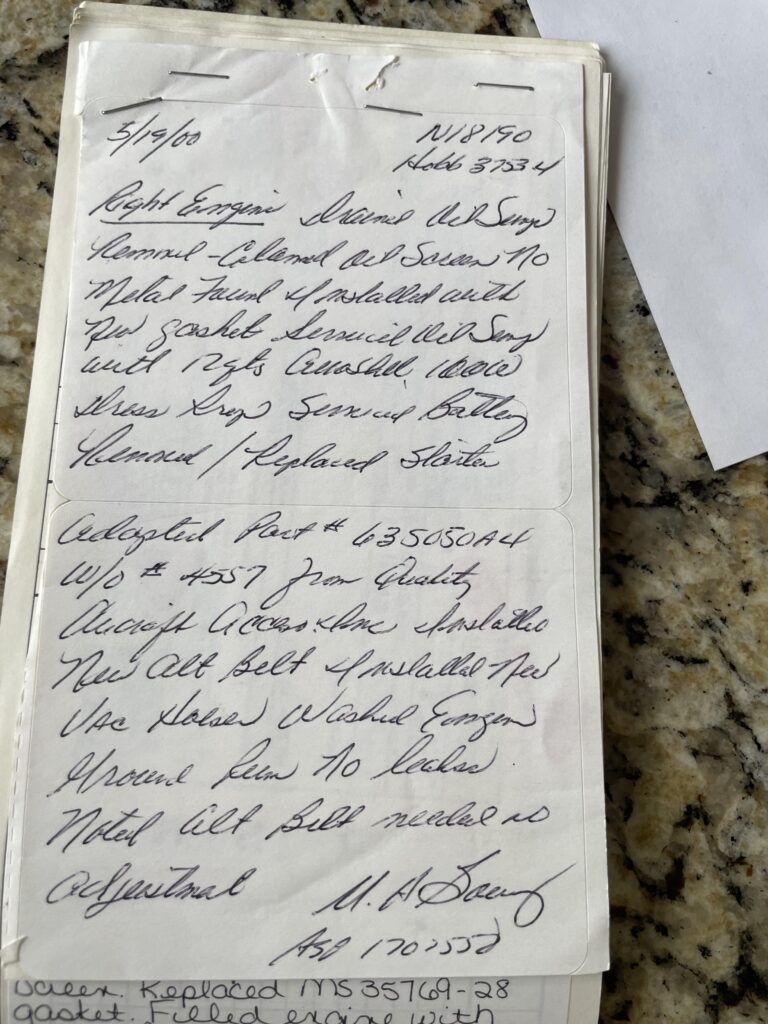 5/19/00 N18190
Hobb 3753 4
Right Engine Drained Oil Sump
Removed - Cleaned Oil Screen No
Metal Found & Installed with
New gasket Serviced Oil Sump
with 12 qts Aeroshell 100W
Dress Prop Serviced Battery
Removed / Replaced Starter
Adapted Part # 635050A4
W/O # 4557 from Quality
Aircraft Access. Inc & Installed
New Alt Belt & Installed New
Vac Hoses Washed Engine
Ground Run No leaks
Noted Alt Belt needed no
Adjustment M. H
A&P
Screen. Replaced MS35769-28
gasket. Filled engine with